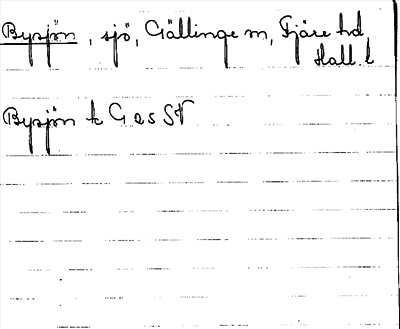 Bysjön, sjö, Gällinge sn, Fjäre hd
Hall. l
Bysjön k G a s SV